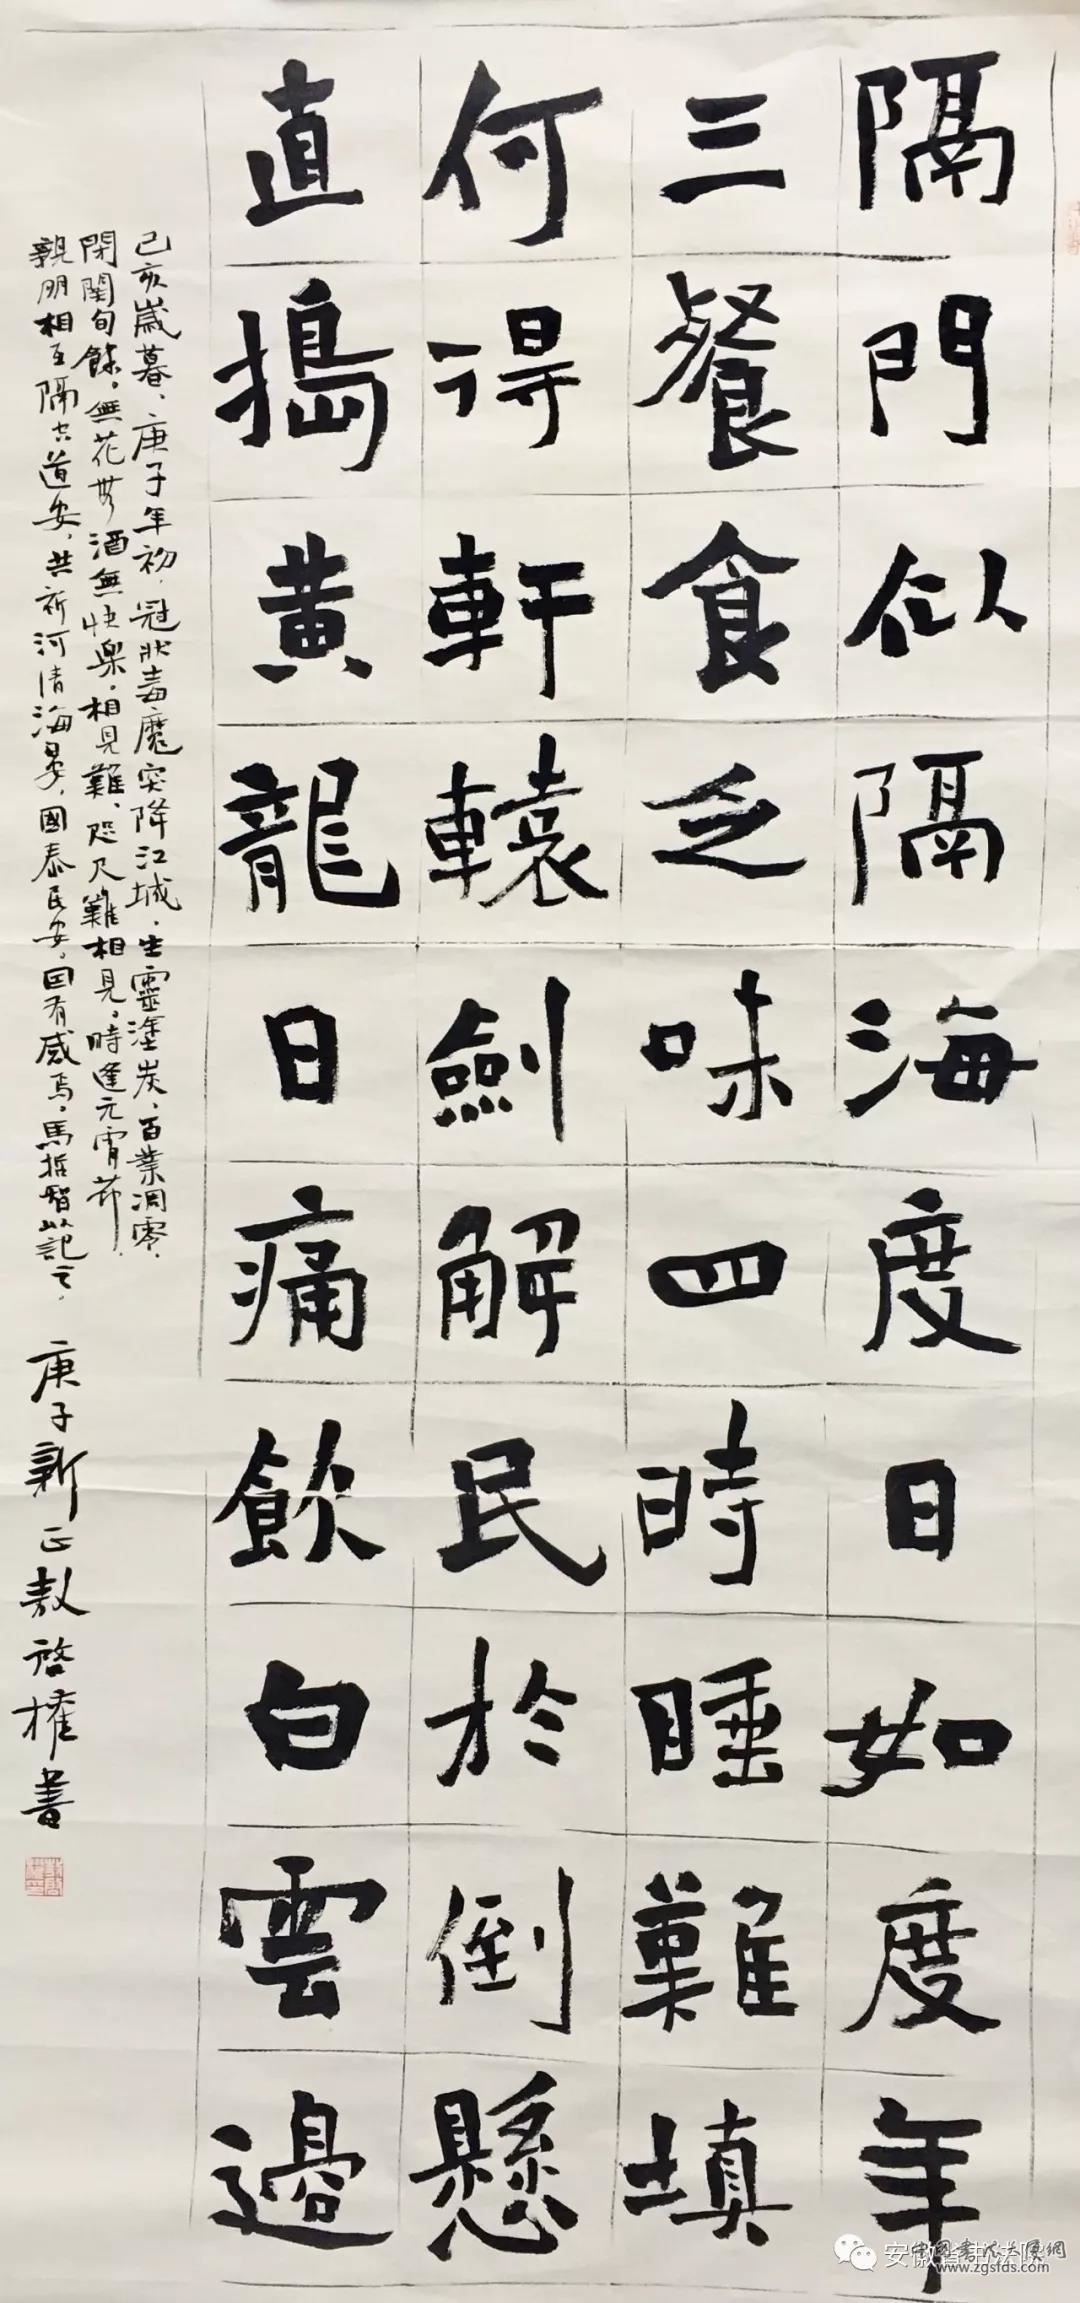 隔門似隔海度日如度年
三餐食乏味四時睡難填
何得軒轅劍解民於倒懸
直搗黃龍日痛飲白雲邊
己亥歲暮、庚子年初，冠狀毒魔突降江城，生靈塗炭，百業凋零，
閉關旬餘，無花無酒無快樂，相見難，咫尺難相見，時逢元宵節，
親朋相互隔空道安，共祈河清海晏，國泰民安，因有感焉，以記之， 庚子新正敖啓權書
安徽省书法院
中國書法大厦網
www.zgsfds.com